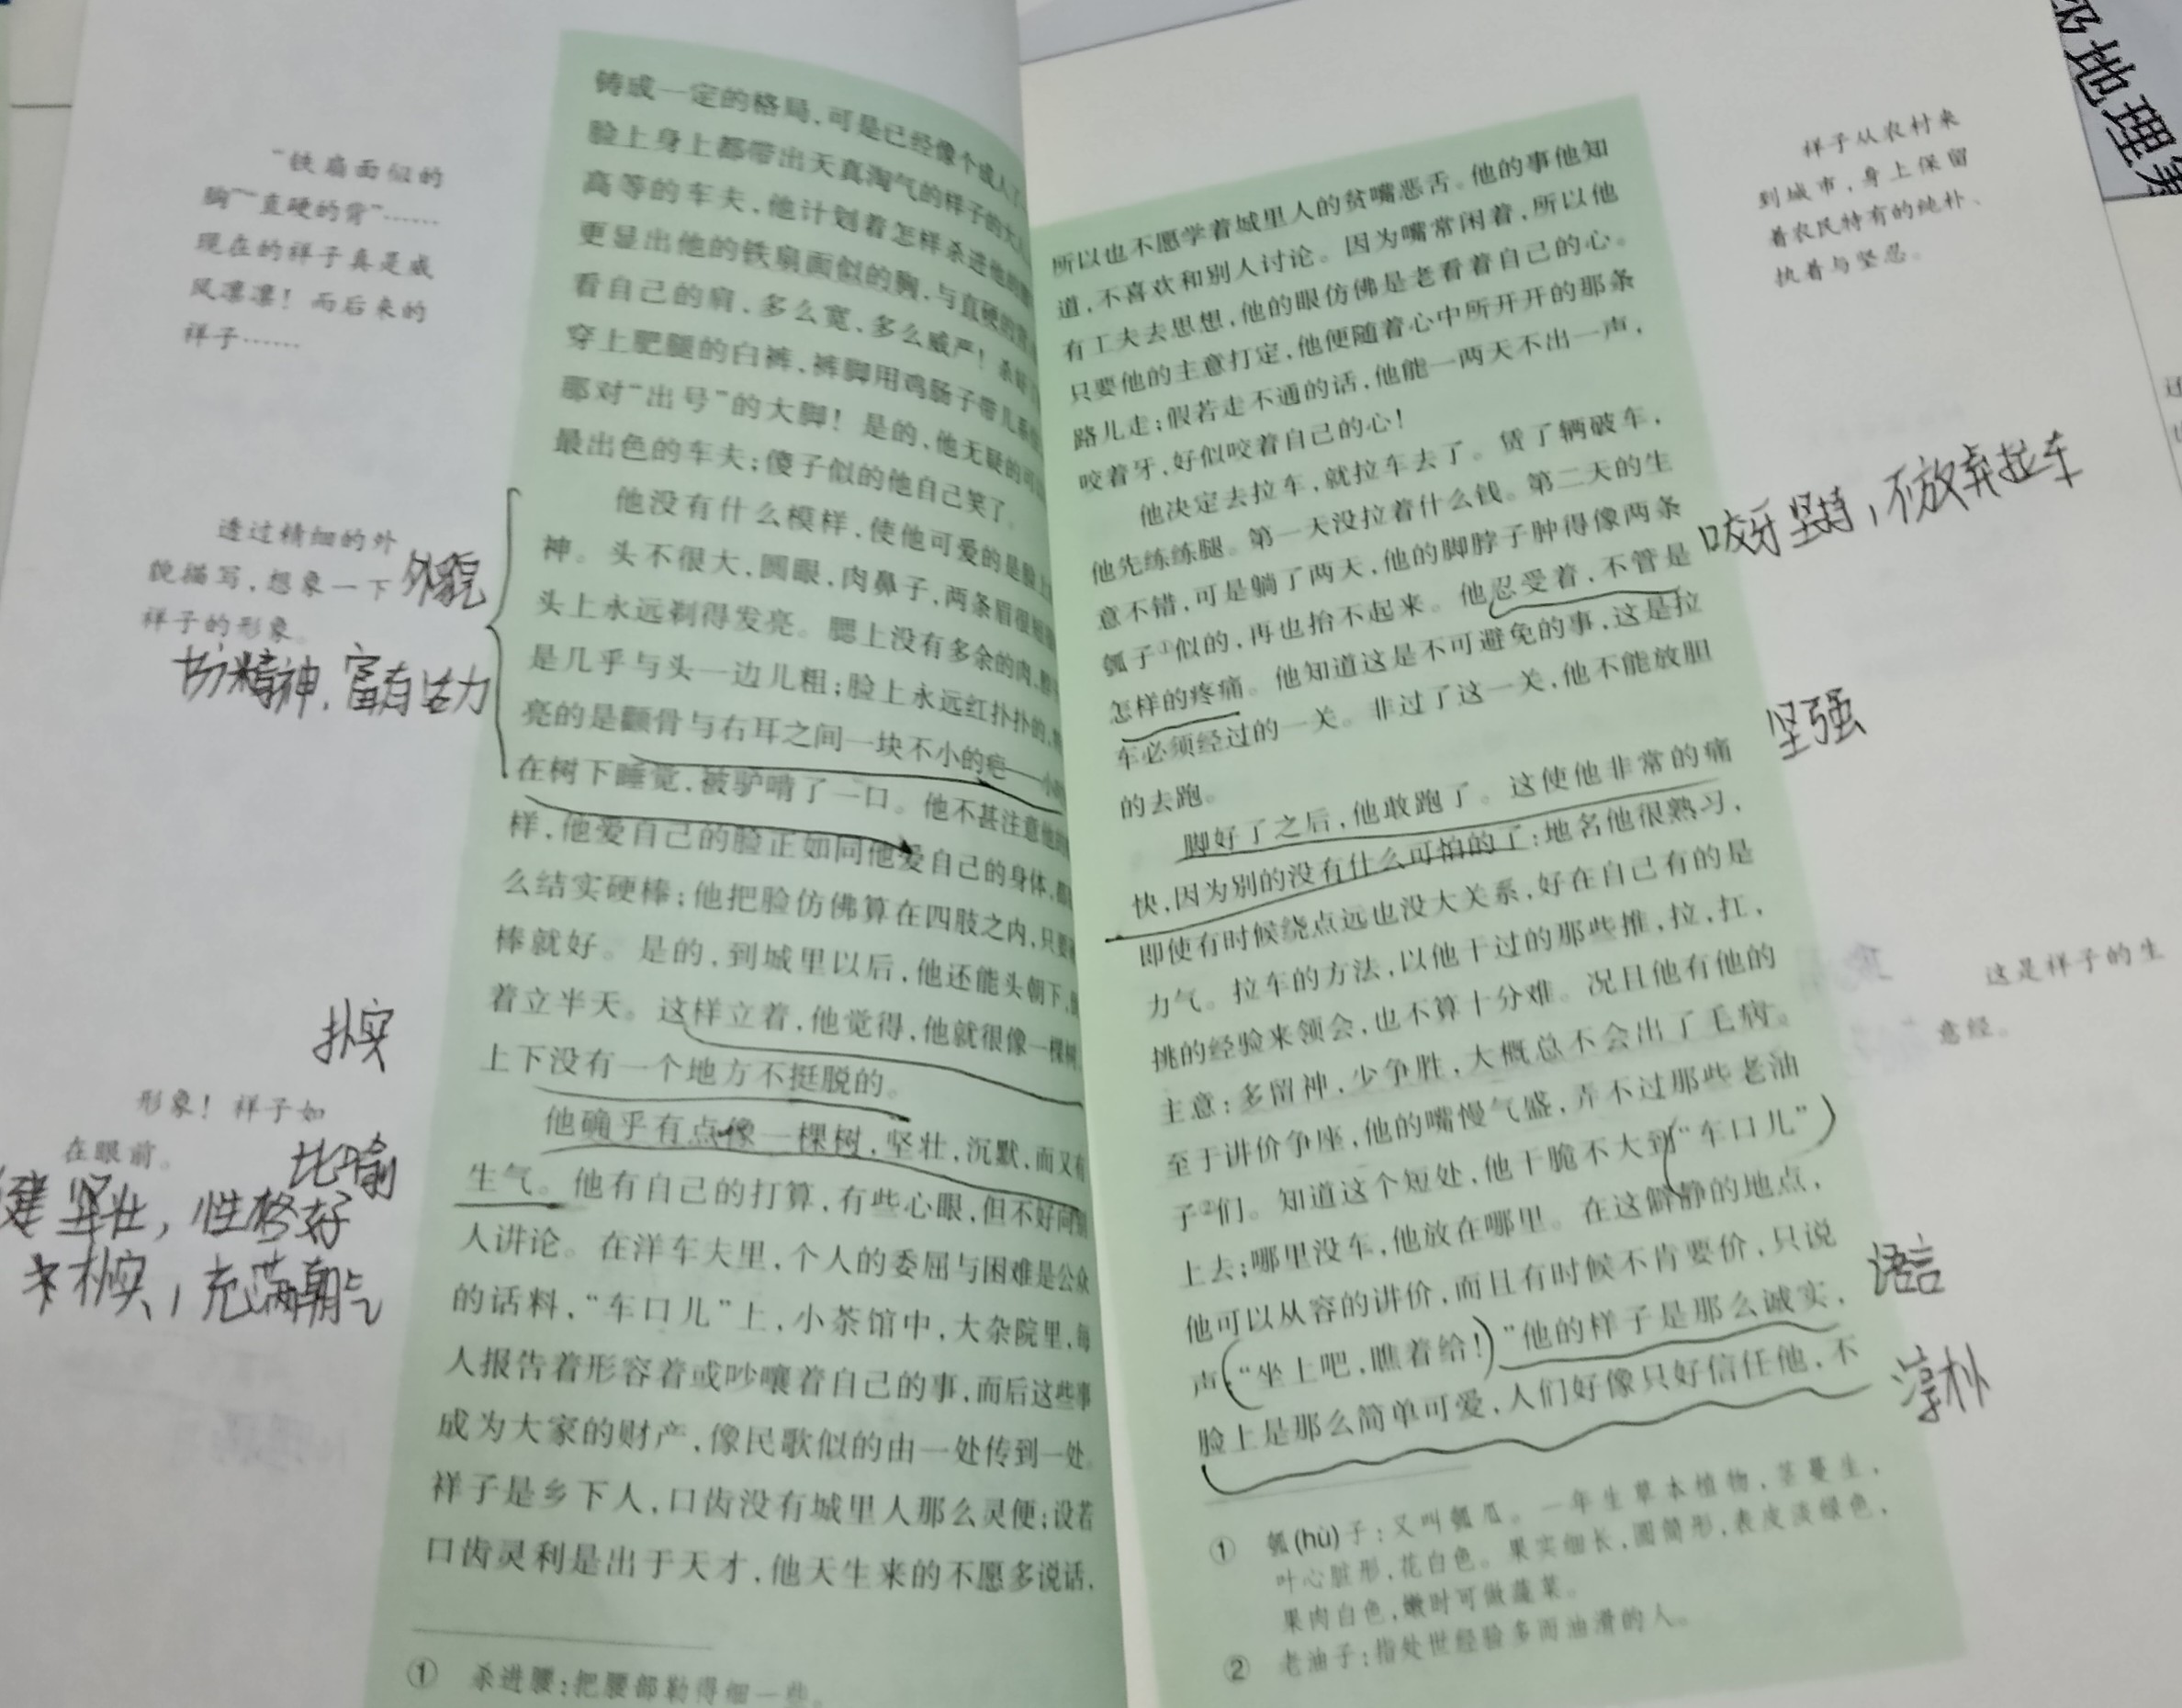 “铁扇面似的
胸”“直硬的背”……
现在的祥子真是威
风凛凛！而后来的
祥子……
透过精细的外
貌描写，想象一下
祥子的形象。
外貌
有精神，富有活力
朴实
形象！祥子如
在眼前。
比喻
健 坚壮，性格好
朴实，充满朝气
铸成一定的格局，可是已经像个成人了
脸上身上都带出天真淘气的样子的大人
高等的车夫，他计划着怎样杀进他的腰
更显出他的铁扇面似的胸，与直硬的背
看自己的肩，多么宽，多么威严！杀好
穿上肥腿的白裤，裤脚用鸡肠子带儿系住
那对“出号”的大脚！是的，他无疑的可以
最出色的车夫；傻子似的他自己笑了。
他没有什么模样，使他可爱的是脸上
神。头不很大，圆眼，肉鼻子，两条眉很短
头上永远剃得发亮。腮上没有多余的肉，脖
是几乎与头一边儿粗；脸上永远红扑扑的，特
亮的是颧骨与右耳之间一块不小的疤——小时
在树下睡觉，被驴啃了一口。他不甚注意他的
样，他爱自己的脸正如同他爱自己的身体，都
么结实硬棒；他把脸仿佛算在四肢之内，只要
棒就好。是的，到城里以后，他还能头朝下，倒
着立半天。这样立着，他觉得，他就很像一棵树
上下没有一个地方不挺脱的。
他确乎有点像一棵树，坚壮，沉默，而又有
生气。他有自己的打算，有些心眼，但不好向别
人讲论。在洋车夫里，个人的委屈与困难是公众
的话料，“车口儿”上，小茶馆中，大杂院里，每
人报告着形容着或吵嚷着自己的事，而后这些事
成为大家的财产，像民歌似的由一处传到一处。
祥子是乡下人，口齿没有城里人那么灵便；设若
口齿灵利是出于天才，他天生来的不愿多说话，
① 杀进腰：把腰部勒得细一些。
所以也不愿学着城里人的贫嘴恶舌。他的事他知
道，不喜欢和别人讨论。因为嘴常闲着，所以他
有工夫去思想，他的眼仿佛是老看着自己的心。
只要他的主意打定，他便随着心中所开开的那条
路儿走；假若走不通的话，他能一两天不出一声，
咬着牙，好似咬着自己的心！
他决定去拉车，就拉车去了。赁了辆破车，
他先练练腿。第一天没拉着什么钱。第二天的生
意不错，可是躺了两天，他的脚脖子肿得像两条
瓠子①似的，再也抬不起来。他忍受着，不管是
怎样的疼痛。他知道这是不可避免的事，这是拉
车必须经过的一关。非过了这一关，他不能放胆
的去跑。
脚好了之后，他敢跑了。这使他非常的痛
快，因为别的没有什么可怕的了：地名他很熟习，
即使有时候绕点远也没大关系，好在自己有的是
力气。拉车的方法，以他干过的那些推，拉，扛，
挑的经验来领会，也不算十分难。况且他有他的
主意：多留神，少争胜，大概总不会出了毛病。
至于讲价争座，他的嘴慢气盛，弄不过那些老油
子②们。知道这个短处，他干脆不大到“车口儿”
上去；哪里没车，他放在哪里。在这僻静的地点，
他可以从容的讲价，而且有时候不肯要价，只说
声：“坐上吧，瞧着给！”他的样子是那么诚实，
脸上是那么简单可爱，人们好像只好信任他，不
① 瓠(hù)子：又叫瓠瓜。一年生草本植物，茎蔓生，
叶心脏形，花白色。果实细长，圆筒形，表皮淡绿色，
果肉白色，嫩时可做蔬菜。
② 老油子：指处世经验多而油滑的人。
祥子从农村来
到城市，身上保留
着农民特有的纯朴、
执着与坚忍。
咬牙坚持，不放弃拉车
坚强
这是祥子的生
意经。
语言
淳朴
地理